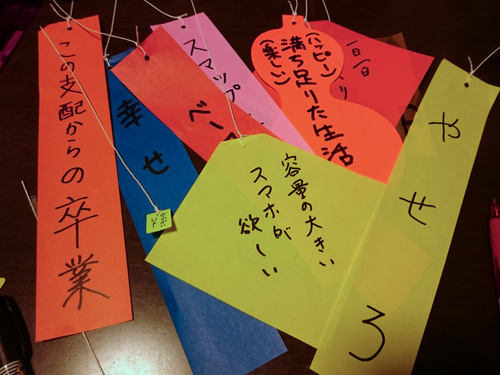 この支配からの卒業
幸せ
スマップ
ベー
(ハッピー)
(楽しい)
満ち足りた生活
一日一
り
容量の大きい
スマホが
欲しい
やせろ